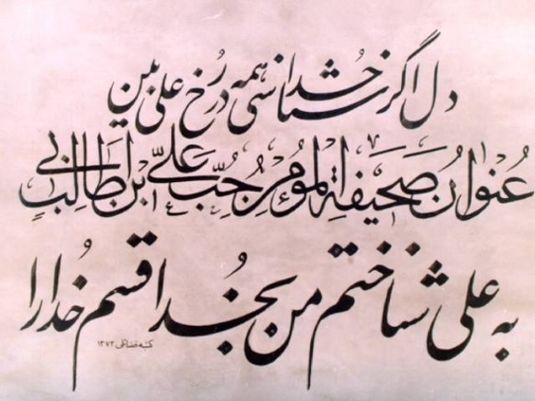 دل اگر خداشناسی همه در رخ علی بین
عُنوانُ صَحیفَةِ المُؤمِنِ حُبُّ عَلیِّ ابْنِ اَبی طالِبٍ
به علی شناختم من بخدا قسم خُدا را
۱۳۷۲